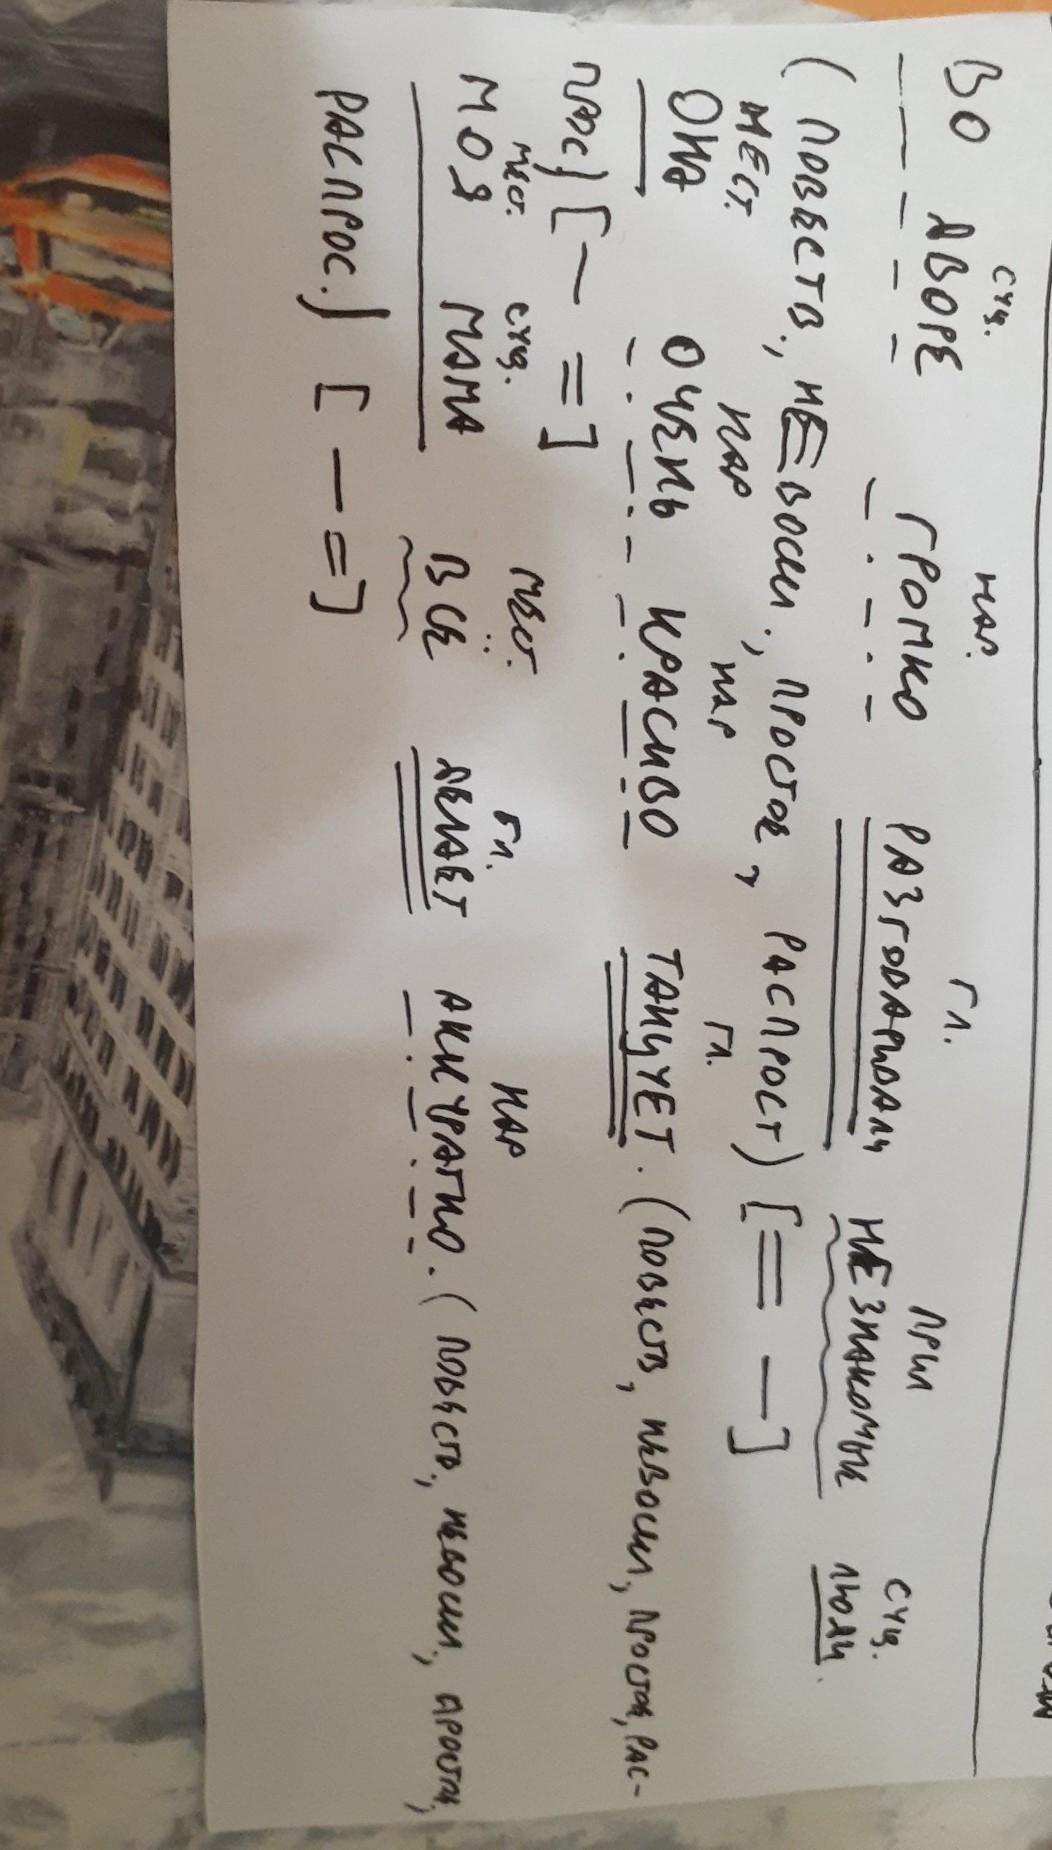 сущ. нар. гл. прил сущ.
ВО ДВОРЕ ГРОМКО РАЗГОВАРИВАЛИ НЕЗНАКОМЫЕ ЛЮДИ.
(ПОВЕСТВ., НЕВОСКЛ., ПРОСТОЕ, РАСПРОСТ) [= -]
МЕСТ. НАР НАР ГЛ.
ОНА ОЧЕНЬ КРАСИВО ТАНЦУЕТ. (ПОВЕСТВ, НЕВОСКЛ, ПРОСТОЕ, РАС-
ПРОС) [- =]
мест. сущ. мест. гл. НАР
МОЯ МАМА ВСЕ ДЕЛАЕТ АККУРАТНО. (ПОВЕСТВ., НЕВОСКЛ, ПРОСТОЕ,
РАСПРОС.) [- =]